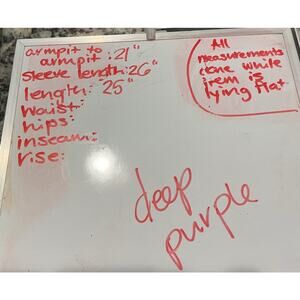 armpit to
armpit : 21"
sleeve length: 26"
length: 25"
waist:
hips:
inseam:
rise:
All
measurements
done while
item is
lying flat
deep
purple